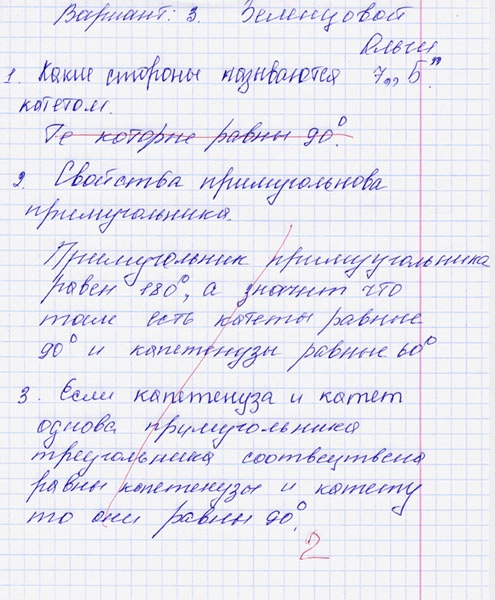 Вариант: 3. Зеленцовой
Ольги
1. Какие стороны називаются 7 "Б"
катетом.
Те которие равны 90°.
2. Свойства примугольнова
примугольника.
Примугольник примуугольника
равен 180°, а значит что
там есть катеты равные
90° и капетенузы равные 60°
3. Если капетенуза и катет
однова прумугольника
треугольника соотвеуствена
равны капетенузы и катету
то они равны 90°.
2